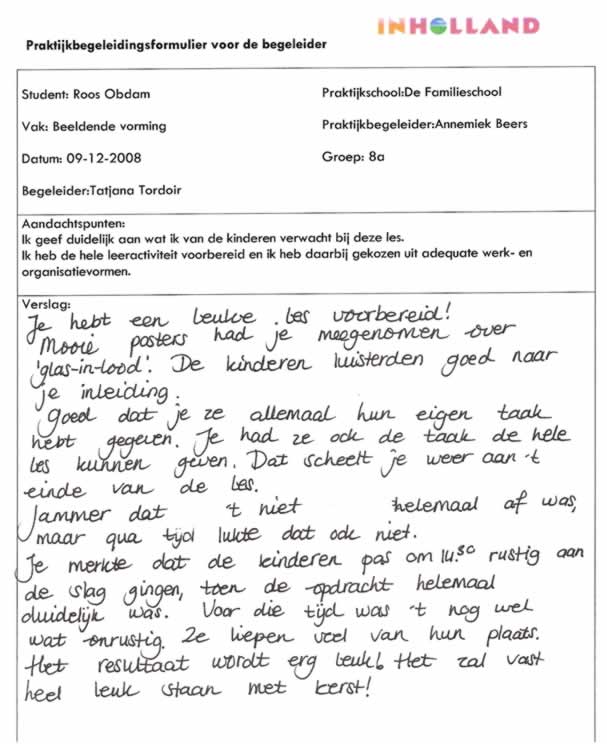 INHOLLAND
Praktijkbegeleidingsformulier voor de begeleider
Student: Roos Obdam
Praktijkschool:De Familieschool
Vak: Beeldende vorming
Praktijkbegeleider:Annemiek Beers
Datum: 09-12-2008
Groep: 8a
Begeleider:Tatjana Tordoir
Aandachtspunten:
Ik geef duidelijk aan wat ik van de kinderen verwacht bij deze les.
Ik heb de hele leeractiviteit voorbereid en ik heb daarbij gekozen uit adequate werk- en
organisatievormen.
Verslag:
Je hebt een leuke les voorbereid!
Mooie posters had je meegenomen over
'glas-in-lood'. De kinderen luisterden goed naar
je inleiding.
Goed dat je ze allemaal hun eigen taak
hebt gegeven. Je had ze ook de taak de hele
les kunnen geven. Dat scheelt je weer aan 't
einde van de les.
Jammer dat 't niet helemaal af was,
maar qua tijd lukte dat ook niet.
Je merkte dat de kinderen pas om 14.30 rustig aan
de slag gingen, toen de opdracht helemaal
duidelijk was. Voor die tijd was 't nog wel
wat onrustig. Ze liepen veel van hun plaats.
Het resultaat wordt erg leuk! Het zal vast
heel leuk staan met kerst!